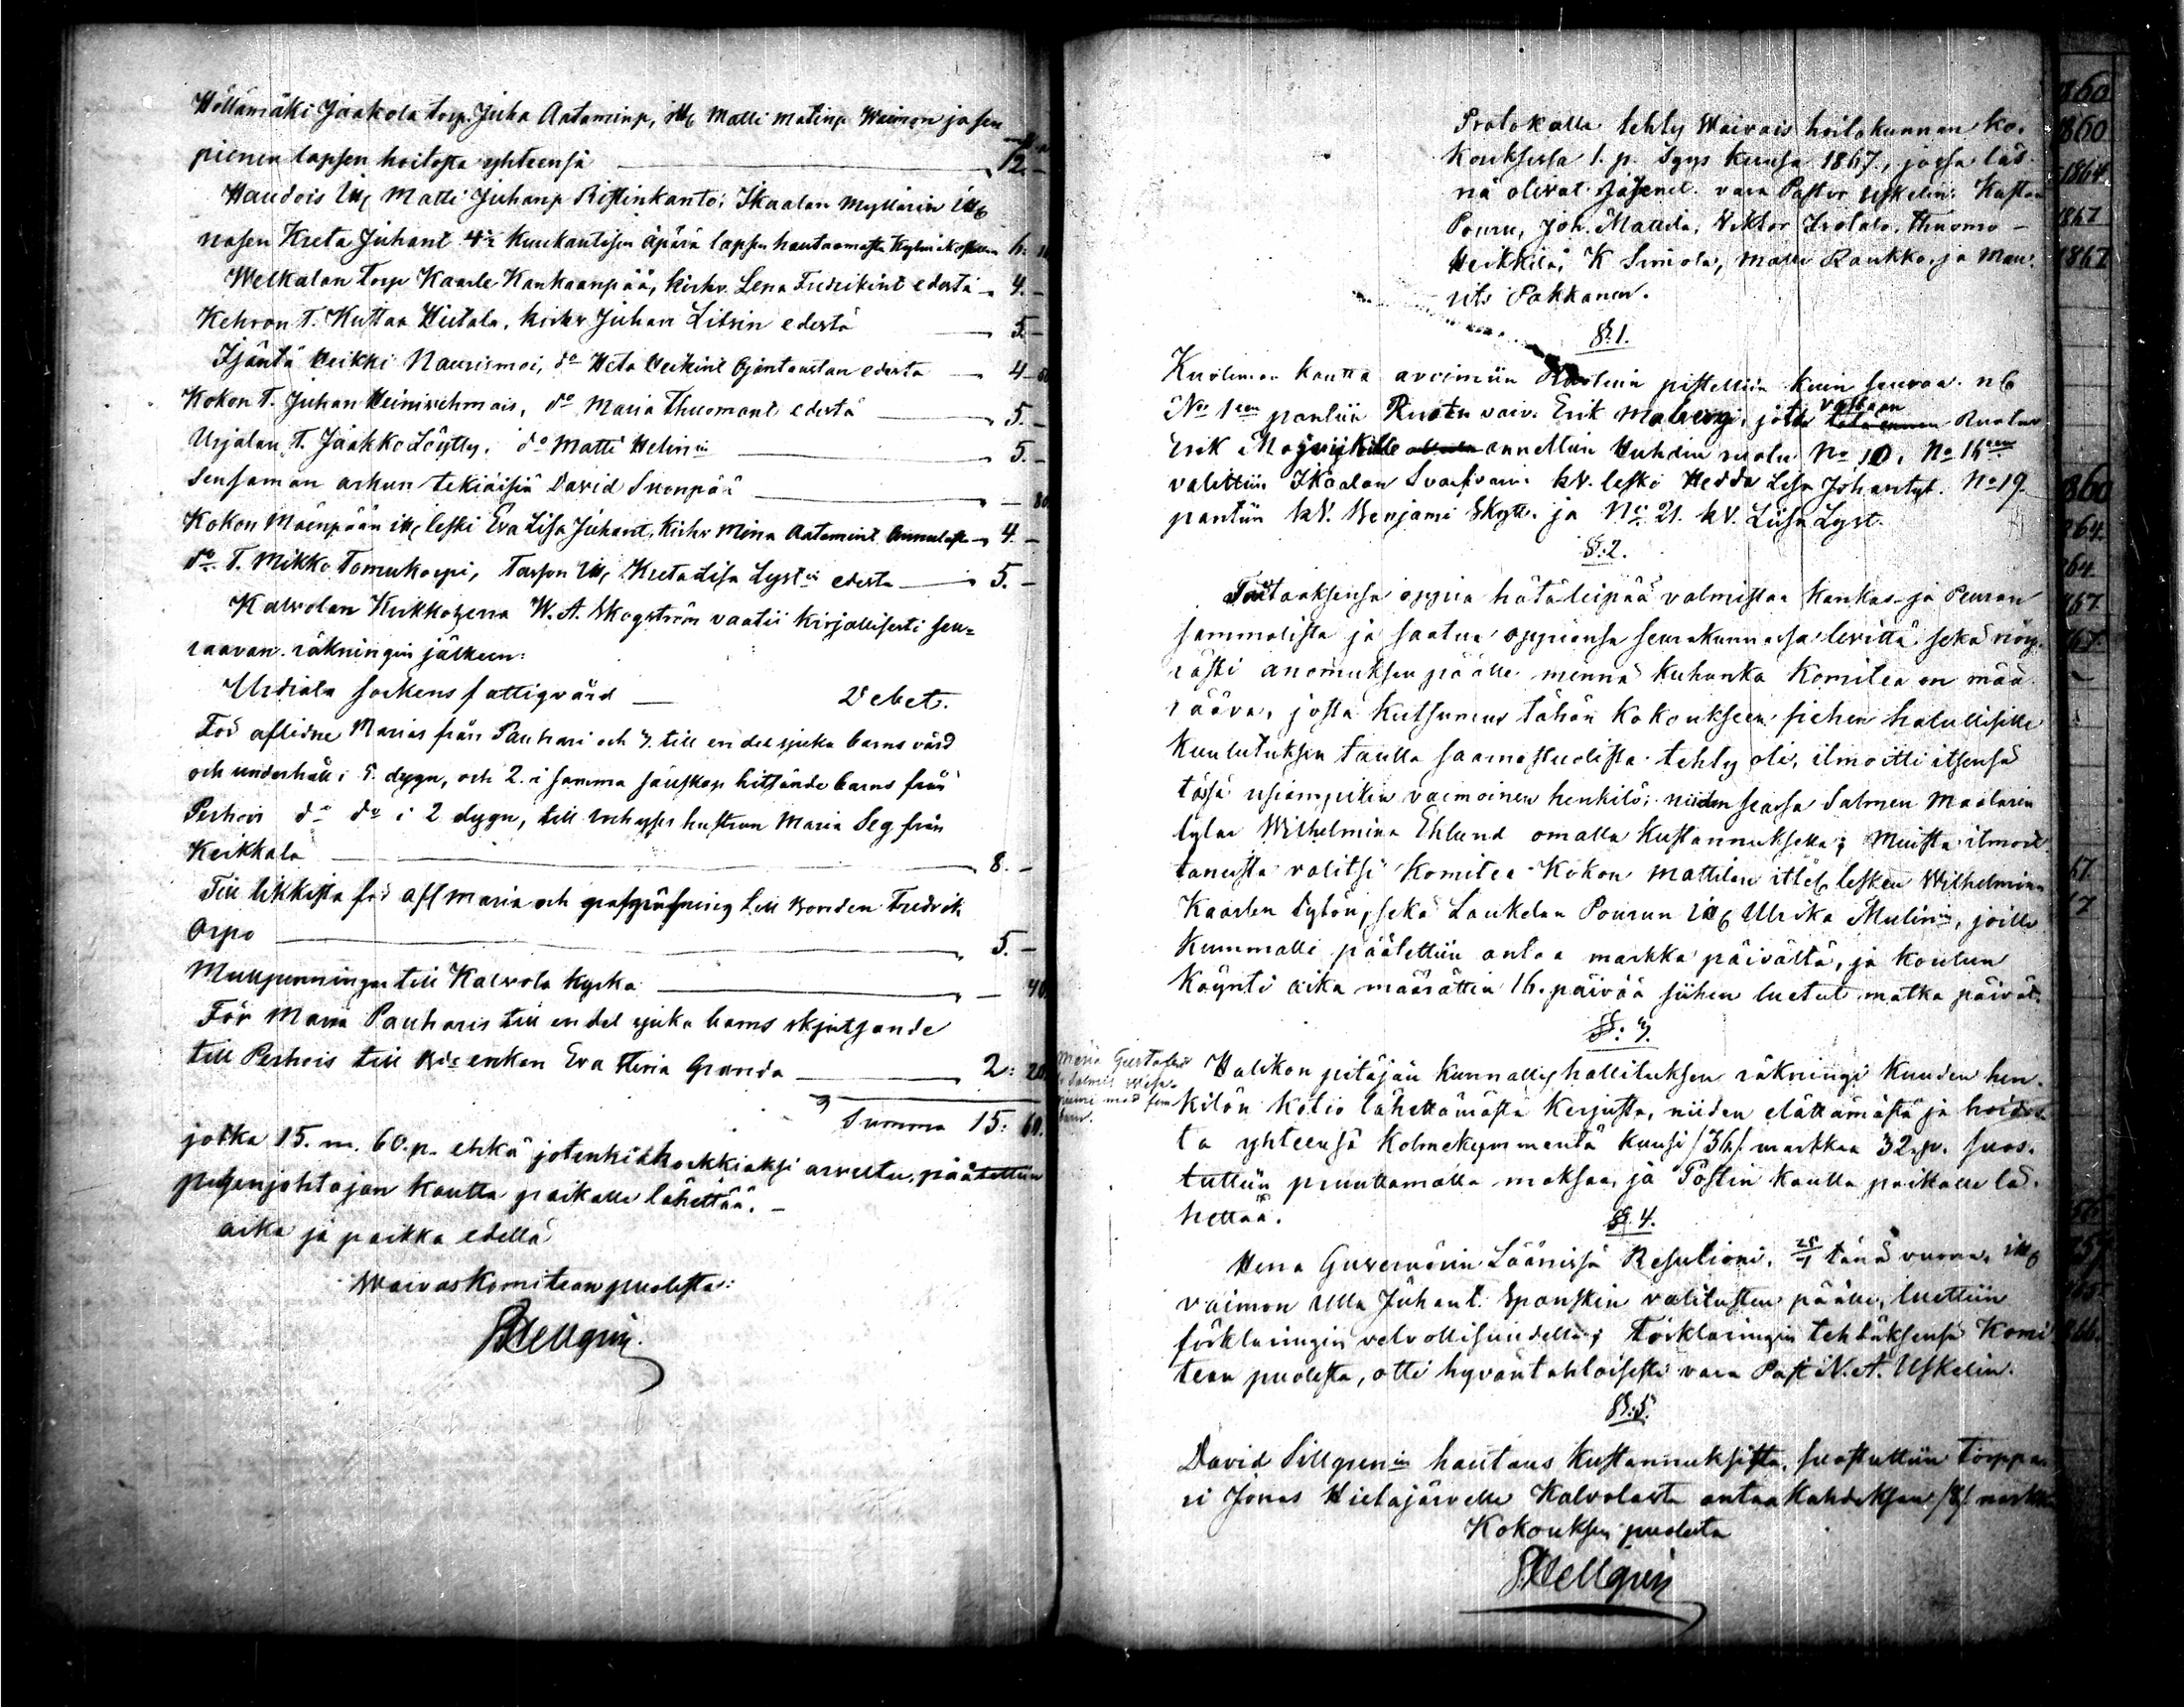 Höllämäki Jaakola torp. Juha Aataminp, itll. Matti Matinp Waimon ja sen
pienen lapsen hoitosta yhteensä — 12. —
Haudois itll Matti Juhanp Ristinkanto; Ikaalan Myllärin itll
nasen Kreta Juhant 4½ kuukautisen äpärä lapsen hautaamasta Kylmäkoskeen 6:
Welkalan Torp Kaarle Kankaanpää, kirkv. Lena Fredrikint edestä — 4. —
Kehron T. Kustaa Hietala, kirkv Juhan Litrin edestä — 5. —
Isäntä Heikki Naurismoi, do Heta Heikint Ojantaustan edestä — 4 —
Kokon T. Juhan Heinirehmais, do Maria Thuomant edestä — 5. —
Urjalan T. Jaakko Löytty. do Matti Helinin — 5. —
Sen saman arkun tekiäisiä David Suonpää — 80
Kokon Mäenpään itll leski Eva Lisa Juhant, kirkv Mina Aatamint — 4. —
do. T. Mikko Tomukorpi, Tarpon itll Kreta Lisa Lystin edestä — 5. —
Kalvolan Kirkkoherra W. A. Skogström vaatii kirjallisesti seu=
raavan räkningin jälkeen:
Urdiala sockens fattigvård — Debet.
För aflidne Marias från Pauhari och 3. till en del sjuka barns vård
och underhåll i 5. dygn, och 2. i samma sällskap hittände barns från
Perhois do do i 2 dygn, till Inhyses hustrun Maria Seg från
Keikkala — 8. —
Till likkista för afl Maria och grafgräfning till Bonden Fredrik
Arpo — 5. —
Mullpenningar till Kalvola kyrka — 40
För Maria Pauharis till en del sjuka barns skjutsande
till Perhois till Bde enkan Eva Stina Granda — 2: 20
Summa 15: 60.
jotka 15. m. 60. p. ehkä jotenkin korkkiaksi arveltu, päätettiin
pitäjänjohtajan kautta paikalle lähettää. —
aika ja paikka edellä
Waivaskomitean puolesta:
S Hellgren.
Protokolla tehty Waivais hoitokunnan ko-
kouksessa 1. p. Syys kuussa 1867, jossa läs-
nä olivat jäsenet. vara Pastor Uskelin: Kustaa
Pouru, Joh. Mattila, Viktor Isotalo. Thuomo
Heikkilä, K Simola, Matti Raukko, ja Mau-
rits Pakkanen.
§. 1.
Kuoleman kautta avoimiin Ruotuin pistettiin kuin seuraa. nb
No 1een pantiin Ruotu vaiv. Erik Malbergi, jotta vastaan Ruotu
Erik annettiin Huhdin ruotu No 10. No 16een
valittiin Ikaalan kV. leski Hedda Lisa Johantyt. No 19.
pantiin kV. Benjami Skytt. ja No 21. kV. Liisa Lyst.
§. 2.
Taitaaksensa oppia hätäleipää valmistaa Kankas- ja Peuran
sammalista ja saatua oppiansa seurakunnassa levittä sekä nöy-
rästi anomuksen päälle mennä kuhunka Komitea on mää-
räävä, josta kutsumus tähän kokoukseen siehen halullisille
kuulutuksen kautta saarnastuolista tehty oli, ilmoitti itsensä
tässä usiampikin vaimoinen henkilö; niiden seassa Salmen Maalarin
tytär Wilhelmina Ehlund omalla kustannuksella; Muista ilmoit-
taneista valitsi Komitea Kokon Mattilan itlell lesken Wilhelmina
Kaarlen tytön, sekä Laukelan Pourun itll Ulrika Mulinin, joille
kummalle päätettiin antaa markka päivältä, ja koulun
käynti aika määrättiin 16. päivää siihen luetut matka päivät.
§. 3.
Maria Gustafss
Salmis
med fem
barn.
Halikon pitäjän kunnallis hallituksen räkningi kuuden hen-
kilön kotio lähettämästä kerjusta, niiden elättämästä ja hoidos-
ta yhteensä kolmekymmentä kuusi /36/ markkaa 32. p. suos-
tuttiin pruuttamatta maksaa, ja Postin kautta paikalle lä-
hettää.
§. 4.
Herra Guvernörin Läänissä Resultioni, tänä vuonna, itll
vaimon Ulla Juhant. Spanskin valitusten päälle, luettiin
förklaringin velvollisuudella; Förklaringin tehdäksensä Komi-
tean puolesta, otti hyväntahtoisesti vara Past N. A. Uskelin.
§. 5.
David Sillgrenin hautaus kustannuksista, suostuttiin Torppa-
ri Jonas Hietajärvelle Kalvolasta antaa kahdeksan /8/ markkaa
Kokouksen puolesta
S Hellgren